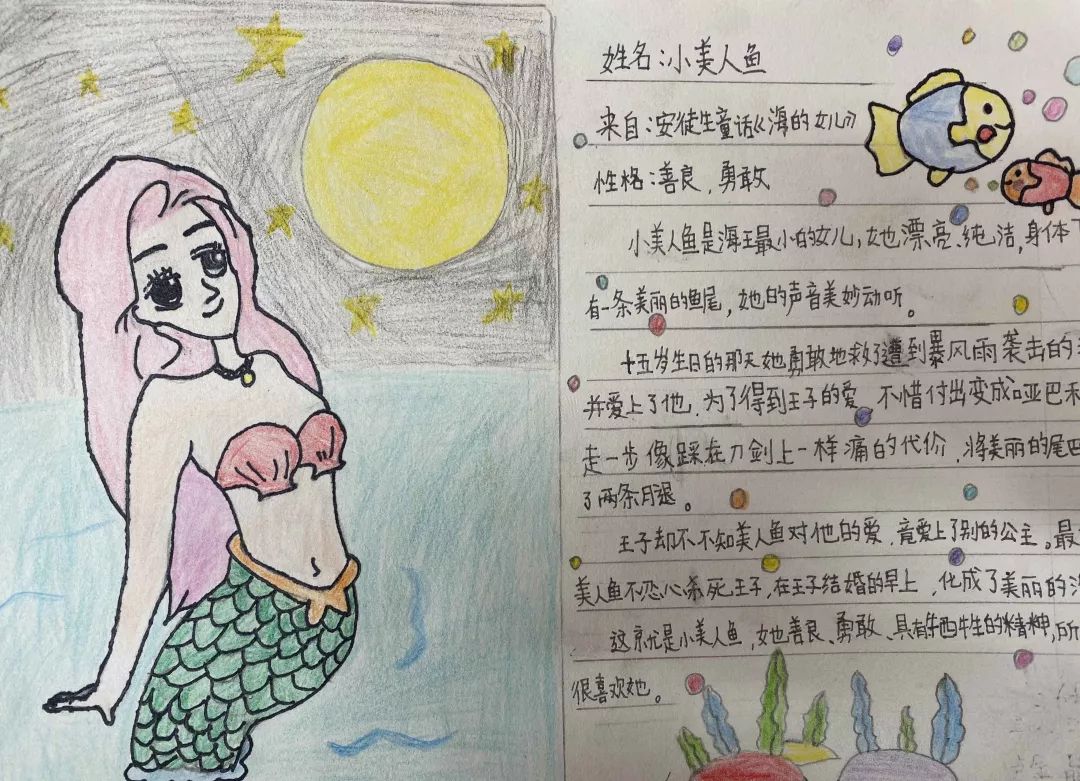 姓名：小美人鱼
来自：安徒生童话《海的女儿》
性格：善良，勇敢
小美人鱼是海王最小的女儿，她漂亮、纯洁，身体下
有一条美丽的鱼尾，她的声音美妙动听。
十五岁生日的那天她勇敢地救了遭到暴风雨袭击的
并爱上了他，为了得到王子的爱，不惜付出变成哑巴和
走一步像踩在刀剑上一样痛的代价，将美丽的尾巴
了两条腿。
王子却不不知美人鱼对他的爱，竟爱上了别的公主。最
美人鱼不忍心杀死王子，在王子结婚的早上，化成了美丽的
这就是小美人鱼，她善良、勇敢、具有牺牲的精神，所
很喜欢她。